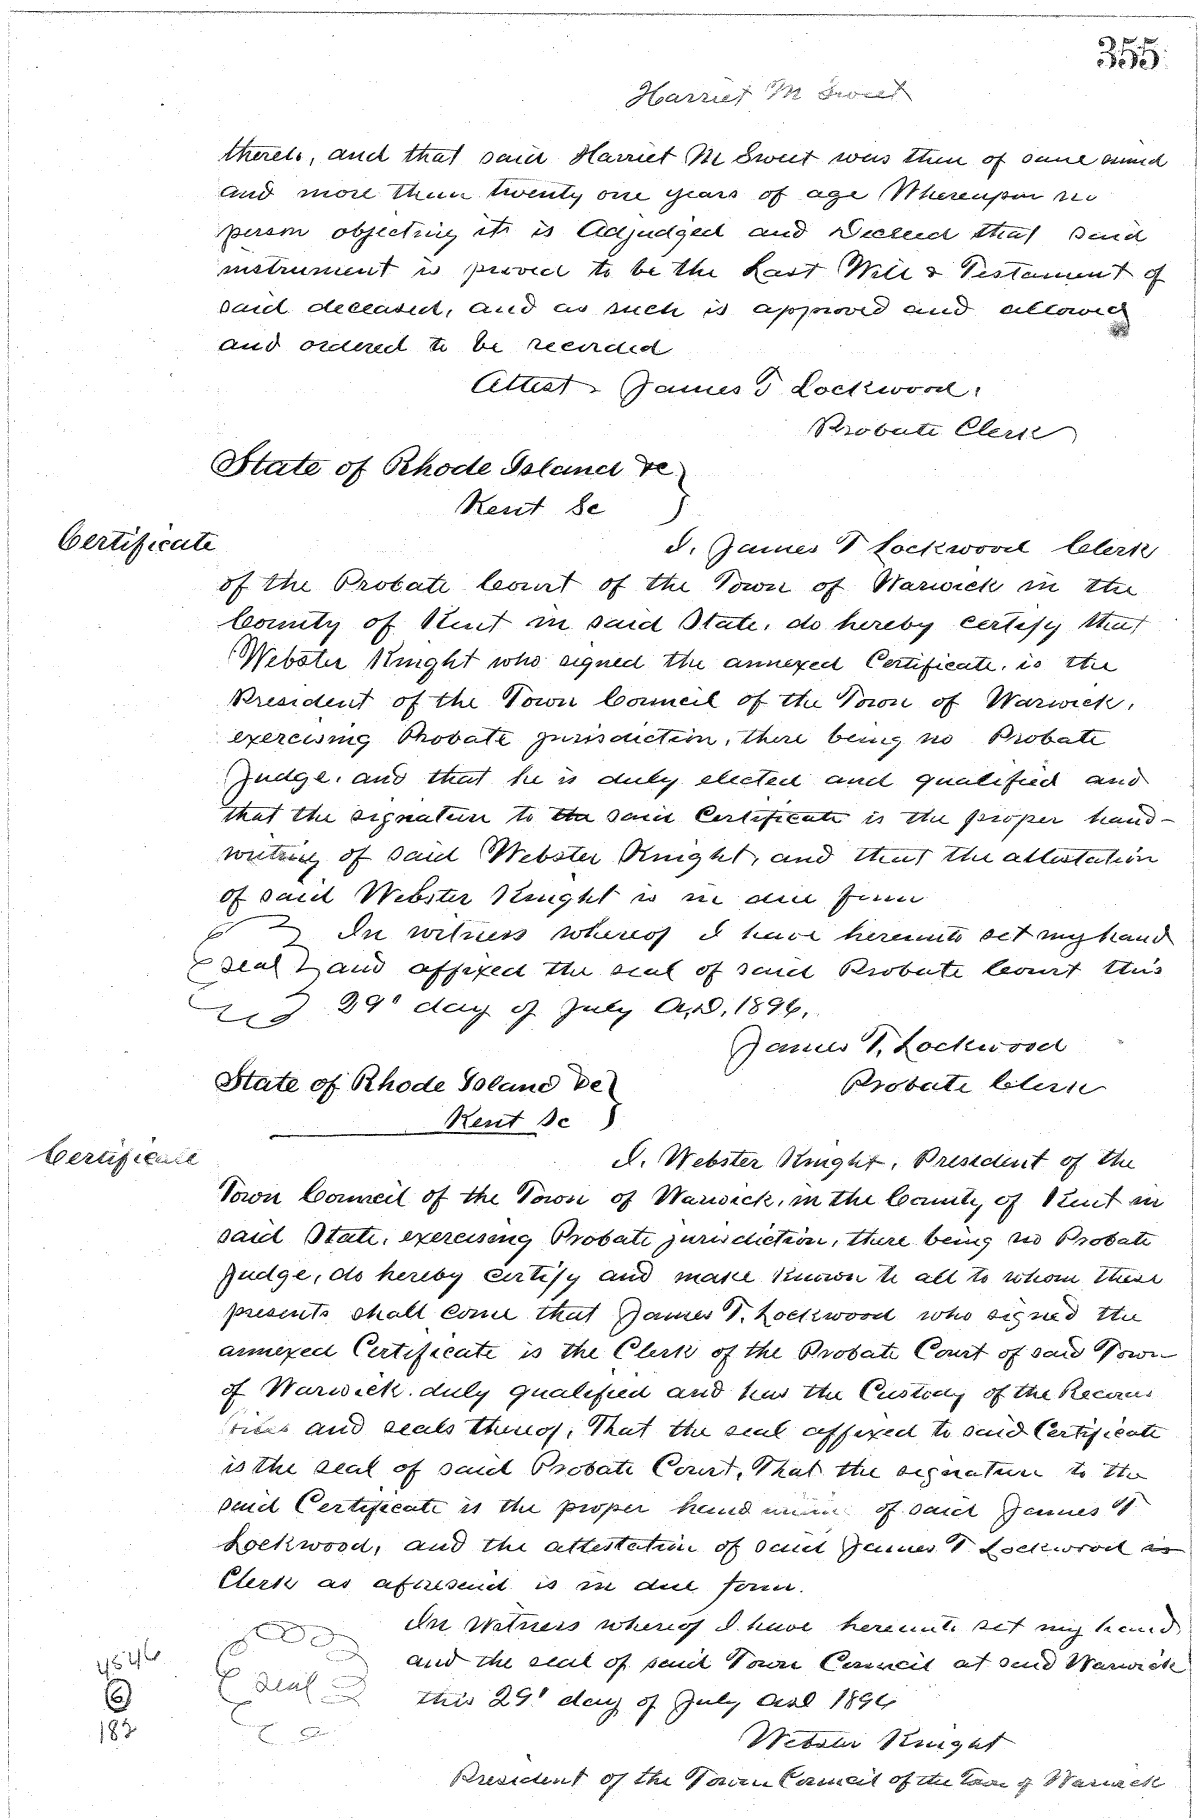 355
Harriet M Sweet
thereto, and that said Harriet M Sweet was then of sane mind
and more than twenty one years of age Whereupon no
person objecting it is Adjudged and Decreed that said
instrument is proved to be the Last Will & Testament of
said deceased, and as such is approved and allowed
and ordered to be recorded
Attest James T Lockwood.
Probate Clerk
State of Rhode Island &c }
Kent Sc
Certificate
I, James T Lockwood Clerk
of the Probate Court of the Town of Warwick in the
County of Kent in said State, do hereby certify that
Webster Knight who signed the annexed Certificate, is the
President of the Town Council of the Town of Warwick,
exercising Probate jurisdiction, there being no Probate
Judge, and that he is duly elected and qualified and
that the signature to the said Certificate is the proper hand-
writing of said Webster Knight, and that the attestation
of said Webster Knight is in due form
In witness whereof I have hereunto set my hand
seal and affixed the seal of said Probate Court this
29' day of July A.D. 1896.
James T. Lockwood
Probate Clerk
State of Rhode Island &c }
Kent Sc
Certificate
I, Webster Knight, President of the
Town Council of the Town of Warwick, in the County of Kent in
said State, exercising Probate jurisdiction, there being no Probate
Judge, do hereby certify and make known to all to whom these
presents shall come that James T. Lockwood who signed the
annexed Certificate is the Clerk of the Probate Court of said Town
of Warwick duly qualified and has the Custody of the Records
and seals thereof, That the seal affixed to said Certificate
is the seal of said Probate Court, That the signature to the
said Certificate is the proper hand of said James T
Lockwood, and the attestation of said James T Lockwood is
Clerk as aforesaid is in due form.
In Witness whereof I have hereunto set my hand
and the seal of said Town Council at said Warwick
seal this 29' day of July AD 1896
Webster Knight
President of the Town Council of the Town of Warwick
4546
6
183